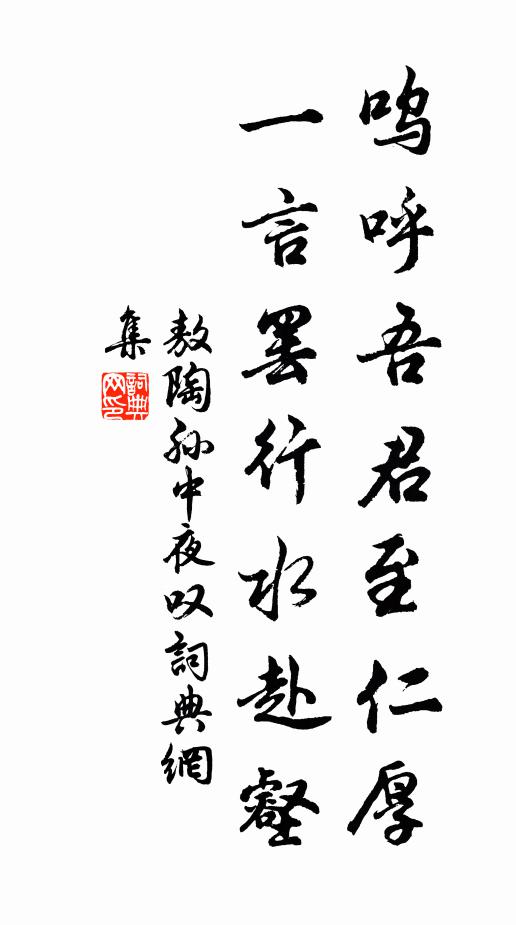 呜呼吾君至仁厚
一言罢行水赴壑
敖陶孙中夜叹詞典網
集
詞典网印